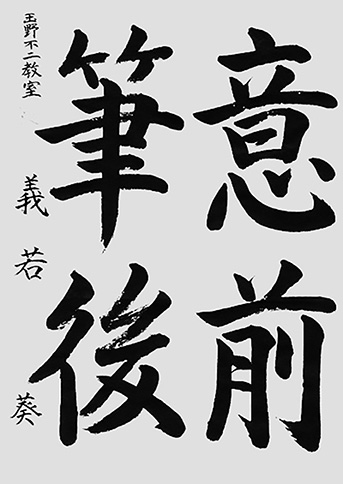 意前
筆後
玉野不二教室
義若葵